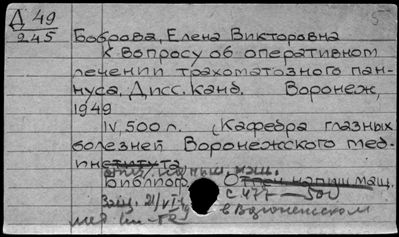 Д 49
245
5
Боброва, Елена Викторовна
К вопросу об оперативном
лечении трахоматозного пан-
нуса, Дисс. канд. Воронеж,
1949
IV, 500 л. (Кафедра глазных
болезней Воронежского мед-
института
Библиогр. Отпеч напиш маш.
с 477 — 500
Защ. 21/VI
в Воронежском
мед ин-те